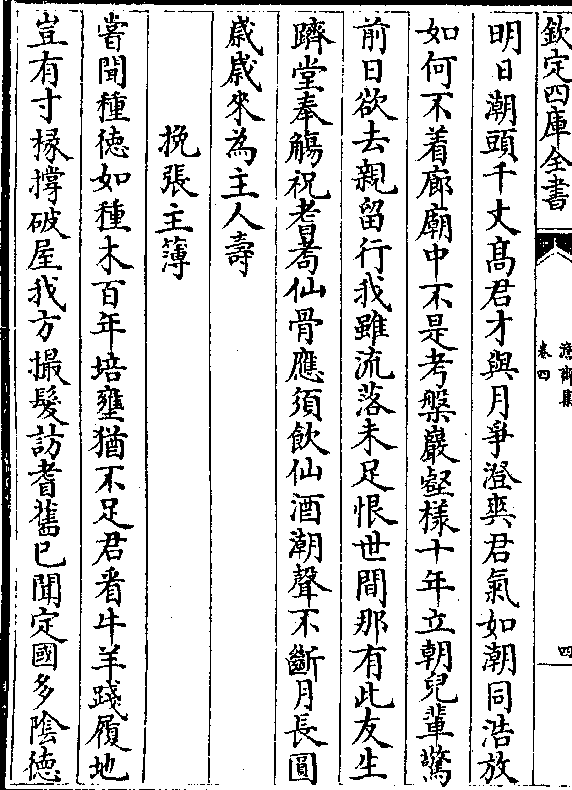 欽定四庫全書
澹齋集
卷四
四
明日潮頭千丈髙君才與月爭澄爽君氣如潮同浩放
如何不着廊廟中不是考槃巖壑様十年立朝兒輩驚
前日欲去親留行我雖流落未足恨世間那有此友生
躋堂奉觴祝耆耉仙骨應須飲仙酒潮聲不斷月長圓
歳歳來為主人壽
挽張主簿
嘗聞種徳如種木百年培壅猶不足君看牛羊踐履地
豈有寸椽撐破屋我方撮髮訪耆舊已聞定國多隂徳